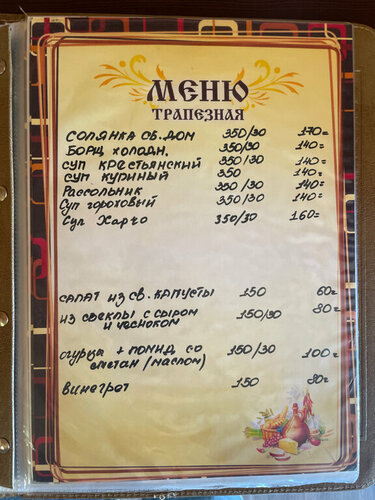 МЕНЮ
ТРАПЕЗНАЯ
СОЛЯНКА ОБ. ДОМ 350/30 170=
БОРЩ ХОЛОДН. 350/30 140=
СУП КРЕСТЬЯНСКИЙ 350/30 140=
СУП КУРИНЫЙ 350 140=
Рассольник 350/30 140=
Суп гороховый 350/30 140=
Суп Харчо 350/30 160=
САЛАТ ИЗ СВ. КАПУСТЫ 150 60=
ИЗ СВЕКЛЫ С СЫРОМ 150/30 80=
И ЧЕСНОКОМ
ОГУРЦЫ + ПОМИД СО 150/30 100=
СМЕТАН (МАСЛОМ)
ВИНЕГРЕТ 150 80=